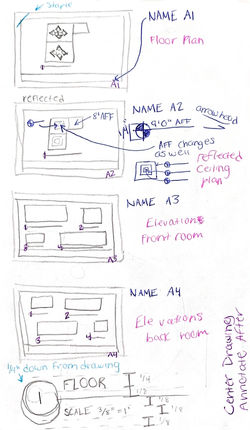 Staple
NAME A1
Floor Plan
1
A1
reflected
NAME A2
8' AFF
9'0" AFF
arrowhead
1/4"
AFF changes
as well
reflected
Ceiling
plan
1
A2
NAME A3
Elevations
front room
1
2
3
4
A3
NAME A4
Elevations
back room
1
2
3
4
A4
Center Drawing
Annotate After
1/4" down from drawing
1
FLOOR
1/4
1/8
SCALE 3/8"=1'
1/8
1/8